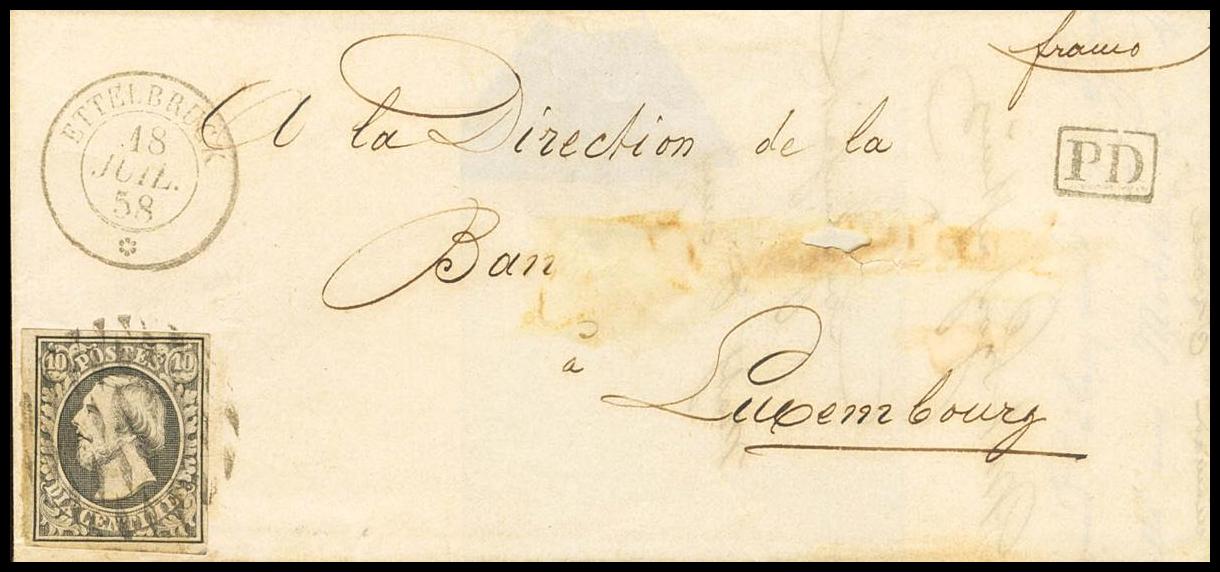 franco
ETTELBRUCK
18
JUIL.
58
A la Direction de la
PD
Ban
à
Luxembourg
10 POSTES 10
DIX CENTIMES